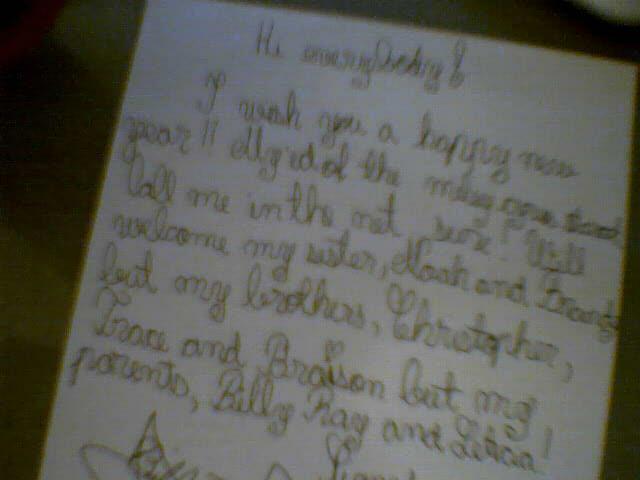 Hi everybody!
I wish you a happy new
year!! My id of the msn
Call me in the net sure! Will
welcome my sister, Noah and Brandy
but my brothers, Christopher,
Trace and Braison but my
parents, Billy Ray and